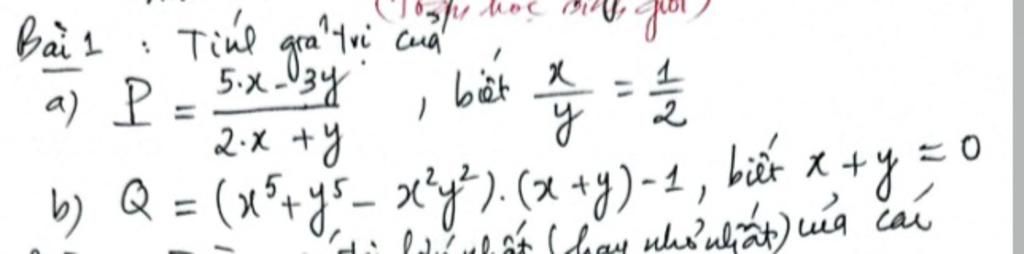 (Toán học sinh giỏi)
Bài 1 : Tính giá trị của
a) P = \frac{5.x - 3y}{2.x + y} , biết \frac{x}{y} = \frac{1}{2}
b) Q = (x⁵ + y⁵ - x²y²).(x + y) - 1, biết x + y = 0
nhất (hay nhỏ nhất) của các